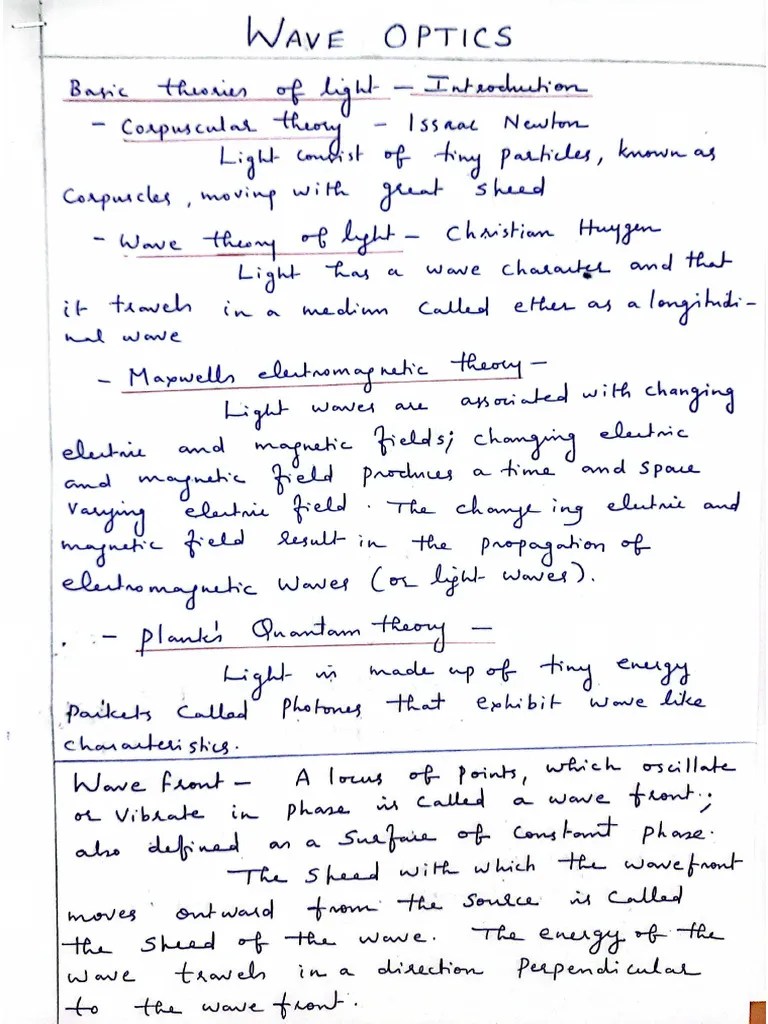 WAVE OPTICS
Basic theories of light – Introduction
- Corpuscular theory - Issac Newton
Light consist of tiny particles, known as
Corpuscles, moving with great sheed
- Wave theory of light - Christian Huygen
Light has a wave character and that
it travels in a medium called ether as a longitudi-
nal wave
- Maxwells electromagnetic theory -
Light waves are associated with changing
electric and magnetic fields; changing electric
and magnetic field produces a time and space
varying electric field. The change ing electric and
magnetic field result in the propagation of
electromagnetic waves (or light waves).
- Plank's Quantam theory -
Light is made up of tiny energy
packets called Photones that exhibit wave like
characteristics.
Wave front - A locus of points, which oscillate
or vibrate in phase is called a wave front;
also defined as a surface of constant phase.
The sheed with which the wavefront
moves outward from the source is called
the sheed of the wave. The energy of the
wave travels in a direction perpendicular
to the wave front.